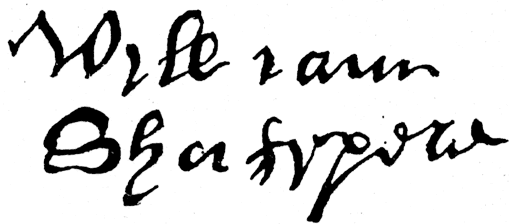 William
Shakspere